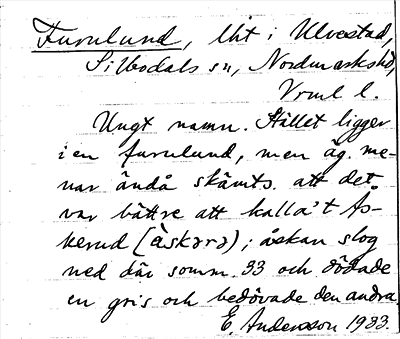 Furulund, lht i Ulvestad,
Silbodals sn, Nordmarkshd,
Vrml l.
Ungt namn. Stället ligger
i en furulund, men äg. me-
nar ändå skämts. att det
var bättre att kalla't Ås-
kerud (àskərə); åskan slog
ned där somm. 33 och dödade
en gris och bedövade den andra.
E. Andersson 1933.